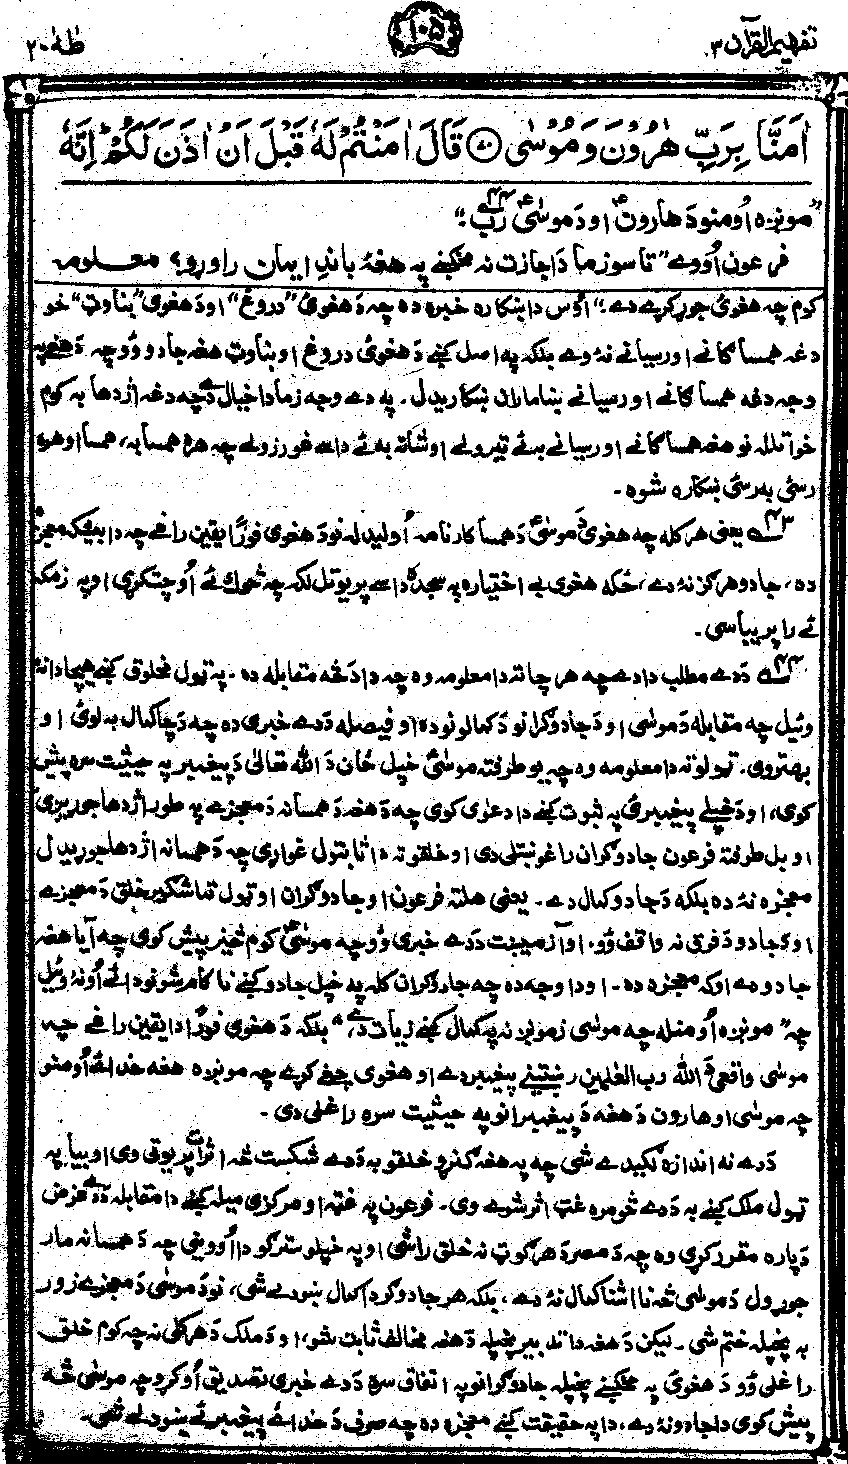 تفهيم القرآن ٣
١٠٥
طٰهٰ ٢٠
اٰمَنَّا بِرَبِّ هٰرُوْنَ وَمُوْسٰى ﴿٧٠﴾ قَالَ اٰمَنْتُمْ لَهٗ قَبْلَ اَنْ اٰذَنَ لَكُمْ ؕ اِنَّهٗ
"مونږه اُومنو د هارونؑ او د موسٰیؑ ربؔ ٤٤؛"
فرعون اُووے "تاسو زما د اجازت نه مخکښے په هغهٔ باندِ ایمان راوړو؟ معلومه
کوم چه هغویٔ جوړ کړے دے؛" اوس دا ښکاره خبره ده چه د هغویٔ "دروغ" او د هغوی "بناوټ" خو
دغه همسا گانے او رسیانے نهٔ وے بلکه په اصل کښے د هغویٔ دروغ او بناوټ هغه جادو وُو چه د هغے په
وجه دغه همسا گانے او رسیانے ښاماران ښکاریدل ـ په دے وجه زما دا خیال دے چه دغه اژدها به کوم
خوا تلله نو هغه همسا گانے او رسیانے به ئے تیرولے او شاته به ئے داسے غورزولے چه هره همسا به، همسا او هره
رسئ به رسئ ښکاره شوه ـ
٤٣ یعنی هر کله چه هغویٔ د موسٰیؑ د همسا کارنامه اُولیدله نو د هغوی فورًا یقین راغے چه دا بیشکه معجزه
ده، جادو هرگز نهٔ دے، ځکه هغوی بے اختیاره په سجده داسے پریوتل لکه چه څوک ئے اُوچت کړی او په زمکه
ئے را پریباسی ـ
٤٤ د دے مطلب دا دے چه هر چا ته دا معلومه وه چه دا د څه مقابله ده ـ په ټول مخلوق کښے هیچا دا نهٔ
وئیل چه مقابله د موسٰی او د جادوگرانو د کمالونو ده او فیصله د دے خبرے ده چه د چا کمال به لوئ او
بهتر وی. ټولو ته دا معلومه وه چه یو طرفته موسٰیؑ خپل ځان د الله تعالٰی د پیغمبر په حیثیت سره پیش
کوی، او د خپلے پیغمبرئ په ثبوت کښے دا دعوٰی کوی چه د هغه د همسا نه د معجزے په طور اژدها جوړیږی
او بل طرفته فرعون جادوگران راغونښتلی دی او خلقو ته دا ثابتول غواړی چه د همسا نه اژدها جوړیدل
معجزه نهٔ ده بلکه د جادو کمال دے ـ یعنی هلته فرعون او جادوگران او ټول تماشگیر خلق د معجزے
او د جادو د فرق نه واقف وُو، او آزمیښت د دے خبرے وُو چه موسٰیؑ کوم څیز پیش کوی چه آیا هغه
جادو دے او که معجزه ده ـ او دا وجه ده چه جادوگران کله په خپل جادو کښے ناکام شو نو دا ئے اُونهٔ وئیل
چه "مونږه اُومنله چه موسٰی زمونږ نه په کمال کښے زیات دے،" بلکه د هغوی فورًا دا یقین راغے چه
موسٰی واقعی د الله رب العٰلمین رښتینے پیغمبر دے او هغوی چغے کړے چه مونږه هغه خدائے اُومنو
چه موسٰی او هارون د هغه د پیغمبرانو په حیثیت سره راغلی دی ـ
د دے نه اندازه لگیدے شی چه په هغه کنړو خلقو به د دے شکست څه اثرات پریوتی وی او بیا په
ټول ملک کښے به د دے څومره غټ اثر شوے وی ـ فرعون په غټه او مرکزی میله کښے دا مقابله د دے غرض
دپاره مقرر کړی وه چه د مصر د هر گوټ نه خلق راشی او په خپلو سترگو دا اُووینی چه د همسا نه مار
جوړول د موسٰی څه نااشنا کمال نهٔ دے، بلکه هر جادوگر دا کمال ښودلے شی، نو د موسٰی د معجزے زور
به پخپله ختم شی ـ لیکن د هغه دا تدبیر پخپله د هغه مخالف ثابت شو، او د ملک د هر گلی نه چه کوم خلق
راغلی وُو د هغویٔ په مخکښے پخپله جادوگرانو په اتفاق سره د دے خبرے تصدیق اُوکړو چه موسٰی څه
پیش کوی دا جادو نهٔ دے، دا په حقیقت کښے معجزه ده چه صرف د خدائے پیغمبر ئے ښودلے شی ـ